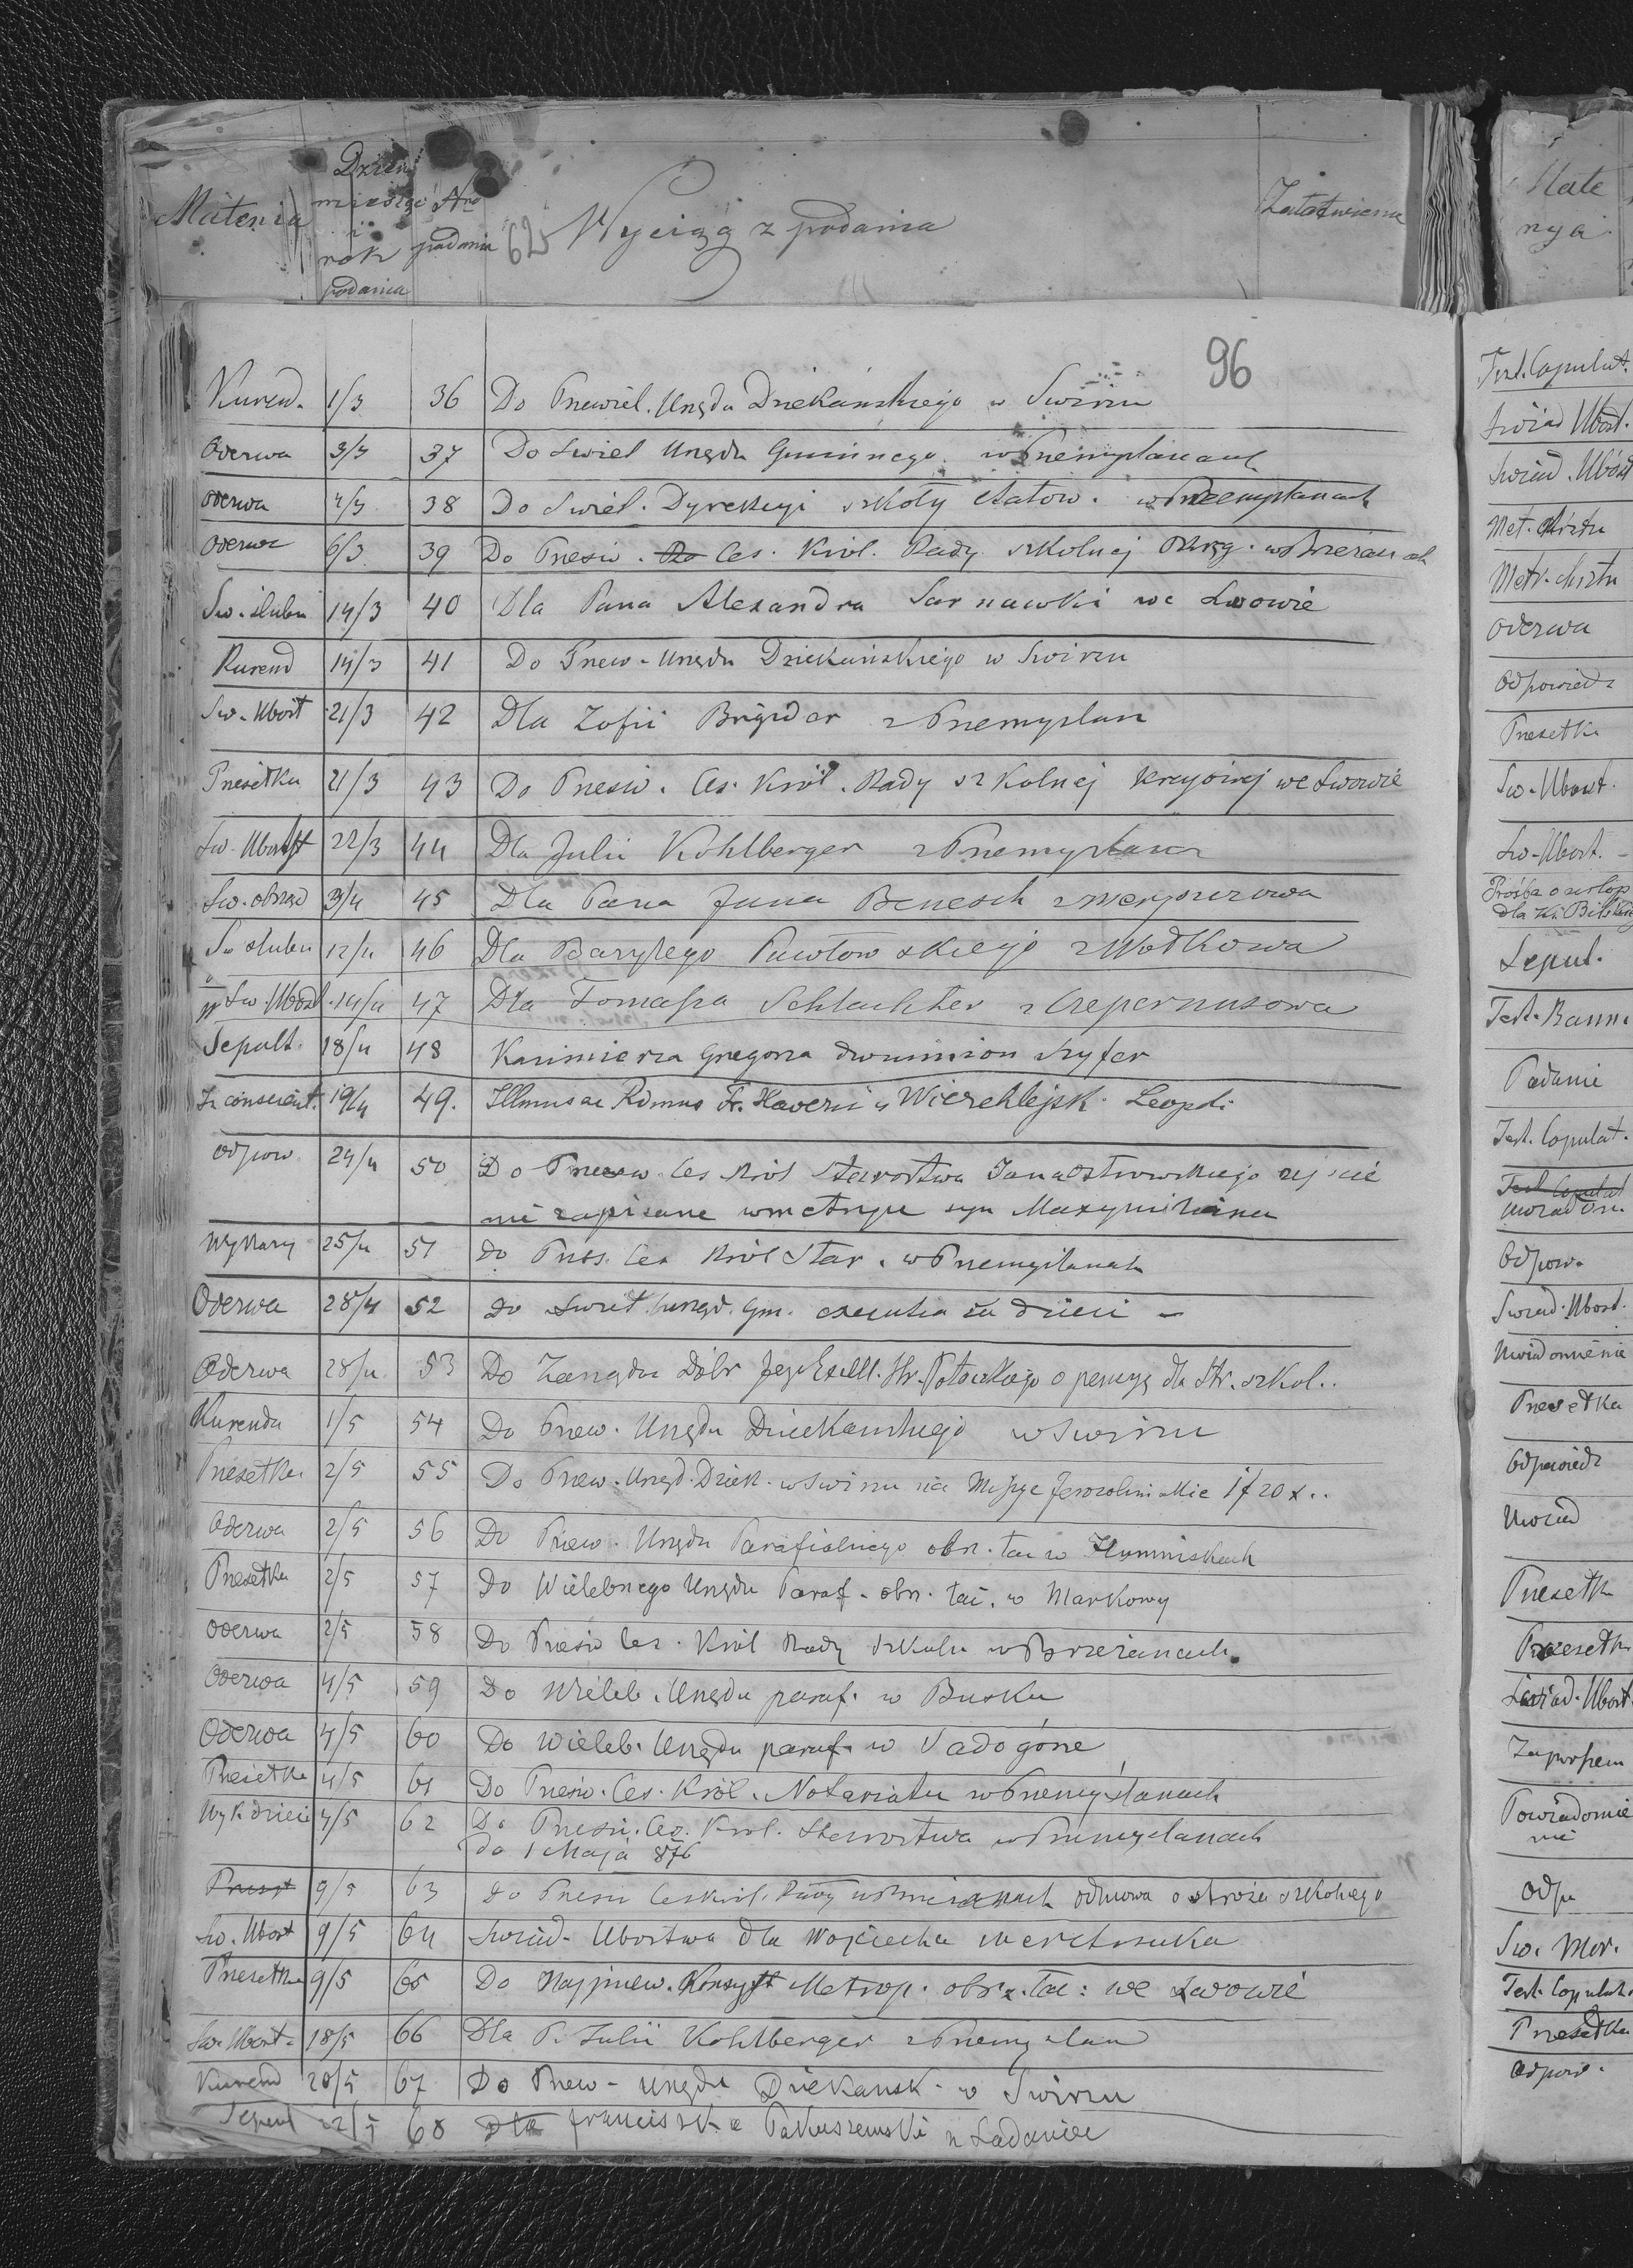 Materia
Dzień
miesiąc
i
rok
podania
Nro
podania
625
Wyciąg z podania
Załatwienie
96
Kurend. 1/3 36 Do Przewiel. Urzędu Dziekańskiego w Swirzu
Oderwa 3/3 37 Do Swiel Urzędu Gminnego w Przemyslanach
Oderwa 4/3 38 Do Swiel. Dyrekcyi szkoły etatow. w Przemyslanach
Oderwa 6/3 39 Do Prześw. Do Ces. Król. Rady szkolnej Okręg. w Brzeżanach
Sw. slubu 14/3 40 Dla Pana Alexandra Sarnawki we Lwowie
Kurend 14/3 41 Do Przew. Urzędu Dziekańskiego w Swirzu
Sw. Ubost 21/3 42 Dla Zofii Brigider z Przemyslan
Przesełka 21/3 43 Do Prześw. Ces. Król. Rady szkolnej krajowej we Lwowie
Sw. Ubost 22/3 44 Dla Julii Kohlberger z Przemyslan
Sw. obrząd 3/4 45 Dla Pana Jana Benesch z
Sw slubu 12/4 46 Dla Bazylego Pawłowskiego z Wołkowa
Sw. Ubost 14/4 47 Dla Tomasza Schlachter z Czepernosowa
Sepult. 18/4 48 Kazimierza Grzegorza dwuimion Szyfer
49. Illmus ac Rdmus Fr. Xaveriu Wierzchlejsk. Leopoli
odpow. 24/4 50 Do Przesw Ces Król Starostwa Jana Ostrowskiego
nie zapisane w metryce syn Maxymiliana
Wykazy 25/4 51 Do Prześ. Ces Król Star. w Przemyslanach
Oderwa 28/4 52 Do Swiet. urzęd. Gm. za dzieci -
Oderwa 28/4 53 Do Zarządu Dóbr Jego Exzell. Hr. Potockiego o pensyę dla Str. szkol..
Kurenda 1/5 54 Do Przew. Urzędu Dziekanskiego w Swirzu
Przesełka 2/5 55 Do Przew. Urzęd. Dziek. w Swirzu na Missye Jerozolimskie 1 f 20 x..
Oderwa 2/5 56 Do Przew. Urzędu Parafialnego obrz. łac w Humniskach
Przesełka 2/5 57 Do Wielebnego Urzędu Paraf. obrz. łac. w Markowy
Oderwa 2/5 58 Do Prześw Ces. Król Rady szkoln w Brzeżanach.
Oderwa 4/5 59 Do Wieleb. Urzędu paraf. w Busku
Oderwa 4/5 60 Do Wieleb. Urzędu paraf. w Jadogóne
Przesełka 4/5 61 Do Prześw. Ces. Król. Notariatu w Przemyslanach
Wyk dzieci 4/5 62 Do Prześw. Ces. Krol. Starostwa w Przemyslanach
do 1 Maja 876
9/5 63 Do Prześw Ces Król. Rady w Brzeżanach odmowa o stroża szkolnego
Sw. Ubost 9/5 64 Swiad. Ubostwa dla Wojciecha
Przesełka 9/5 65 Do Najprzew. Konsyst Metrop. obrz. łac: we Lwowie
Sw. Ubost. 18/5 66 Dla P. Julii Kohlberger z Przemyslan
Kurend 20/5 67 Do Przew. urzędu Dziekansk. w Swirzu
Sepul 22/5 68 Dla Franciszka Pakuszewski z Ladaniec
Mate
rya
Test. Copulat.
Swiad Ubost.
Swiad. Ubóst
Met. chrztu
Metr. chrztu
Oderwa
Odpowiedz
Przesełka
Sw. Ubost.
Sw. Ubost. -
Prośba o
dla X.
Sepul.
Test. Bann.
Podanie
Test. Copulat.
Test Copulat
Odpow.
Swiad. Ubost.
Uwiadomienie
Przesełka
Odpowiedz
Przesełk
Przesełk
Swiad. Ubost.
Powiadomie
nie
Odpo
Sw. Mor.
Test. Copulat.
Przesełka
Odpow.